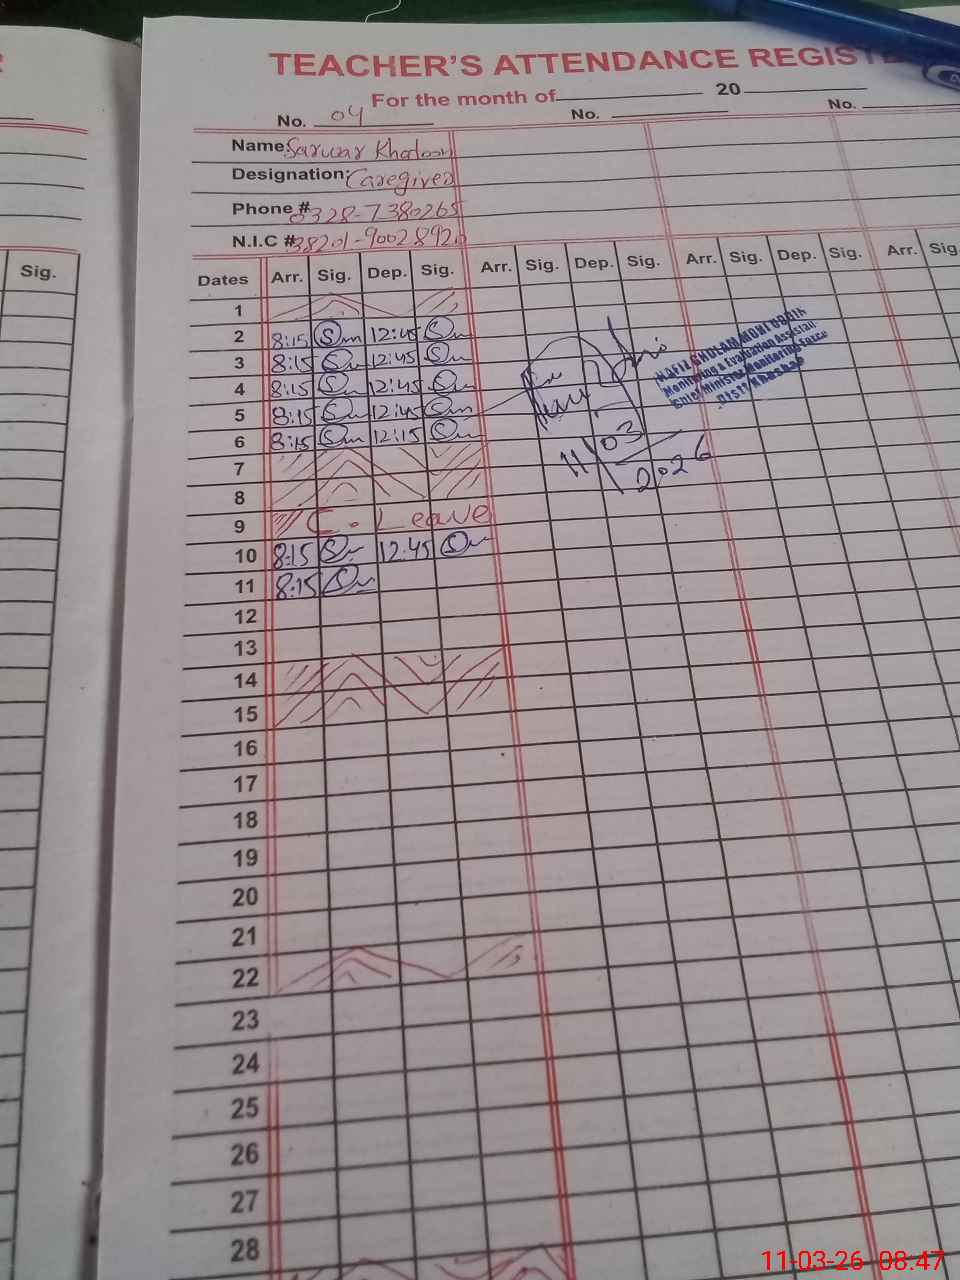 TEACHER'S ATTENDANCE REGISTE
For the month of 20
No. 04 No. No.
Name: Sarwar Khatoon
Designation: Caregiver
Phone # 0328-7380265
N.I.C # 38201-9002892
Sig.
Dates Arr. Sig. Dep. Sig. Arr. Sig. Dep. Sig. Arr. Sig. Dep. Sig. Arr. Sig.
1
2 8:15 12:45
3 8:15 12:45
4 8:15 12:45
5 8:15 12:45
6 8:15 12:15
7
8
9 C. Leave
10 8:15 12:45
11 8:15
12
13
14
15
16
17
18
19
20
21
22
23
24
25
26
27
28
HAFIZ GHULAM MOHI UDDIN
Monitoring & Evaluation Assistant
Chief Minister Monitoring Force
Distt Khushab
11/03
2026
11-03-26 08:47